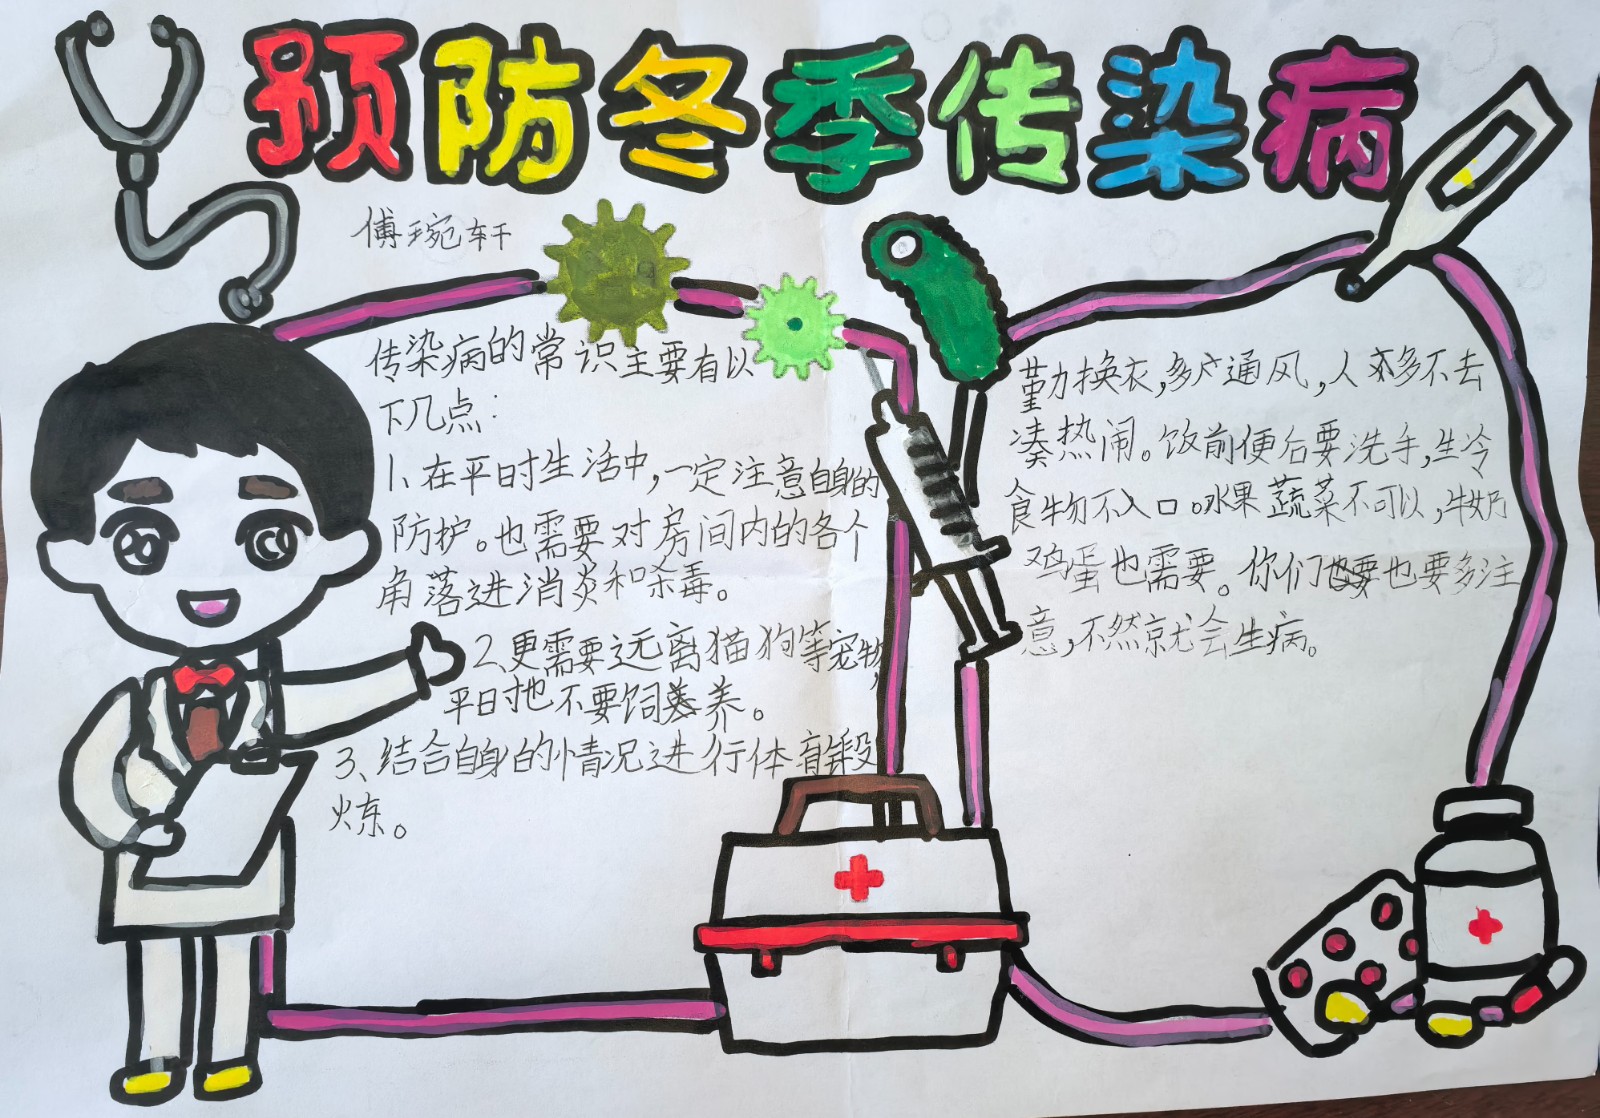 预防冬季传染病
傅琬轩
传染病的常识主要有以
下几点：
1、在平时生活中，一定注意自身的
防护。也需要对房间内的各个
角落进消炎和杀毒。
2、更需要远离猫狗等宠物，
平日时也不要饲养。
3、结合自身的情况进行体育锻
炼。
勤换衣，多通风，人多不去
凑热闹。饭前便后要洗手，生冷
食物不入口。水果蔬菜不可以，牛奶
鸡蛋也需要。你们也要多注
意，不然就会生病。